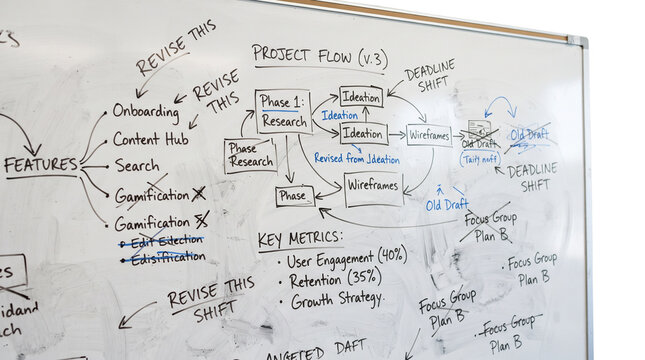 REVISE THIS
REVISE
THIS
FEATURES
Onboarding
Content Hub
Search
Gamification
Gamification
REVISE THIS
SHIFT
PROJECT FLOW (v.3)
DEADLINE
SHIFT
Phase 1:
Research
Ideation
Ideation
Ideation
Wireframes
Old Draft
Old Draft
Phase
Research
Revised from Ideation
DEADLINE
SHIFT
Phase
Wireframes
Old Draft
KEY METRICS:
• User Engagement (40%)
• Retention (35%)
• Growth Strategy.
Focus Group
Plan B
• Focus Group
Plan B
Focus Group
Plan B
• Focus Group
Plan B